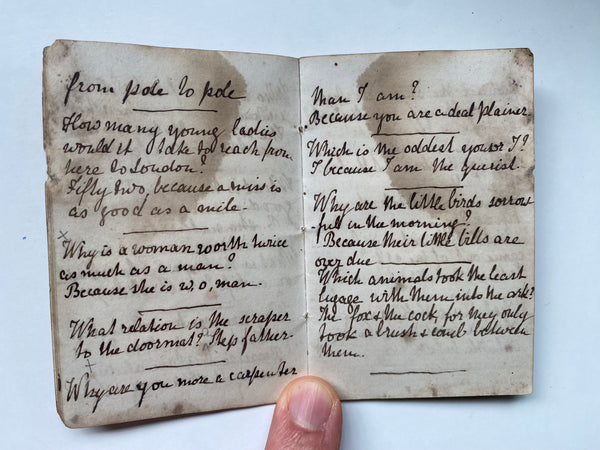 from pole to pole
How many young ladies
would it take to reach from
here to London?
Fifty two, because a miss is
as good as a mile.
Why is a woman worth twice
as much as a man?
Because she is w, o, man.
What relation is the scraper
to the doormat? Step father.
Why are you more a carpenter
than I am?
Because you are a deal plainer
Which is the oddest you or I?
I because I am the querist.
Why are the little birds sorrow
full in the morning?
Because their little bills are
over due
Which animals took the least
lugage with them into the ark?
The fox & the cock, for they only
took a brush & comb between
them.